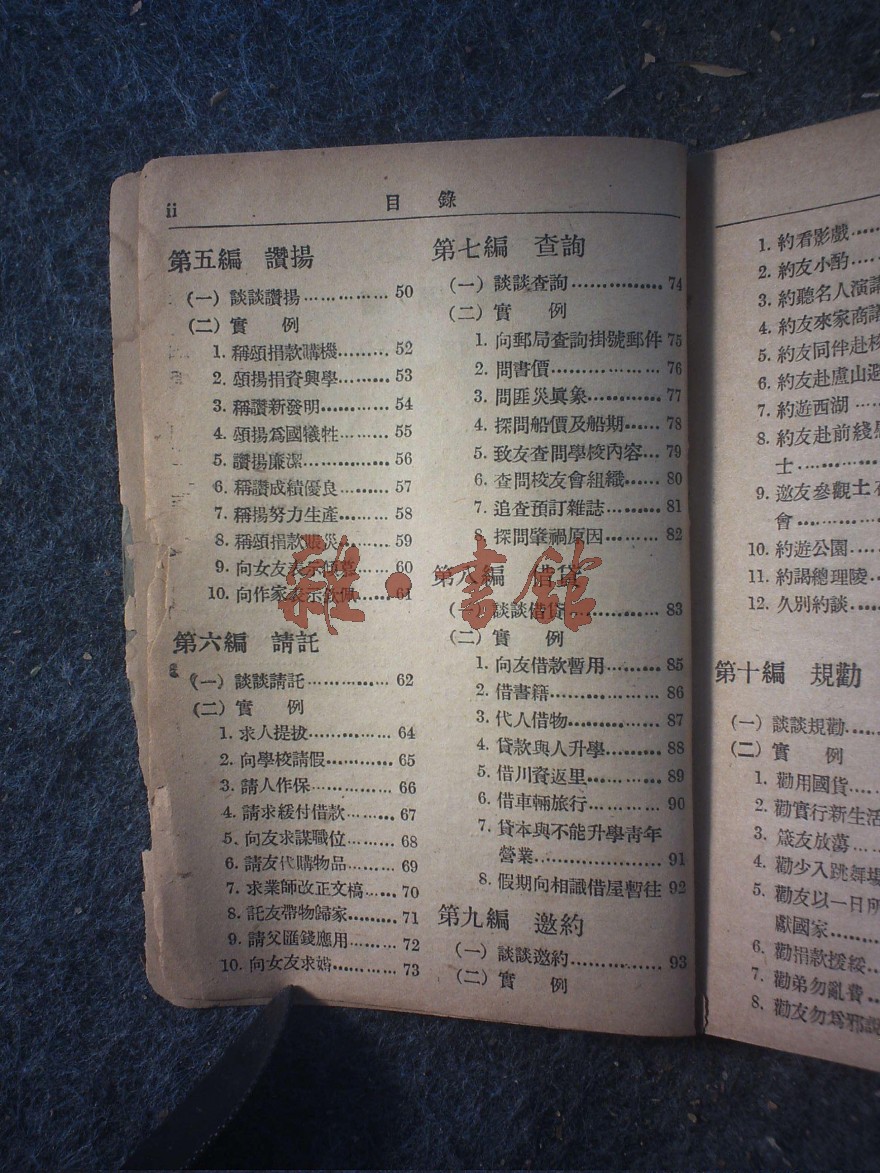 ii
目 錄
第五編 讚揚
(一) 談談讚揚 …………… 50
(二) 實 例
1. 稱頌捐款購機……… 52
2. 頌揚捐資興學……… 53
3. 稱讚新發明………… 54
4. 頌揚爲國犧牲……… 55
5. 讚揚廉潔…………… 56
6. 稱讚成績優良……… 57
7. 稱揚努力生產……… 58
8. 稱頌捐款賑災……… 59
9. 向女友表示傾慕…… 60
10. 向作家表示欽佩…… 61
第六編 請託
(一) 談談請託…………… 62
(二) 實 例
1. 求人提拔…………… 64
2. 向學校請假………… 65
3. 請人作保…………… 66
4. 請求緩付借款……… 67
5. 向友求謀職位……… 68
6. 請友代購物品……… 69
7. 求業師改正文稿…… 70
8. 託友帶物歸家……… 71
9. 請父匯錢應用……… 72
10. 向女友求婚………… 73
第七編 查詢
(一) 談談查詢……………… 74
(二) 實 例
1. 向郵局查詢掛號郵件 75
2. 問書價……………… 76
3. 問匪災眞象………… 77
4. 探問船價及船期…… 78
5. 致友查問學校內容… 79
6. 查問校友會組織…… 80
7. 追查預訂雜誌……… 81
8. 探問肇禍原因……… 82
第八編 借貸
(一) 談談借貸…………… 83
(二) 實 例
1. 向友借款暫用……… 85
2. 借書籍……………… 86
3. 代人借物…………… 87
4. 貸款與人升學……… 88
5. 借川資返里………… 89
6. 借車輛旅行………… 90
7. 貸本與不能升學靑年
營業…………………… 91
8. 假期向相識借屋暫住 92
第九編 邀約
(一) 談談邀約…………… 93
(二) 實 例
1. 約看影戲……
2. 約友小酌……
3. 約聽名人演講
4. 約友來家商議
5. 約友同伴赴校
6. 約友赴廬山避
7. 約遊西湖……
8. 約友赴前綫慰
士……………
9. 邀友參觀土
會……………
10. 約遊公園……
11. 約謁總理陵…
12. 久別約談……
第十編 規勸
(一) 談談規勸……
(二) 實 例
1. 勸用國貨……
2. 勸實行新生活
3. 箴友放蕩……
4. 勸少入跳舞場
5. 勸友以一日所
獻國家………
6. 勸捐款援綏…
7. 勸弟勿亂費…
8. 勸友勿爲邪說
雜·書館